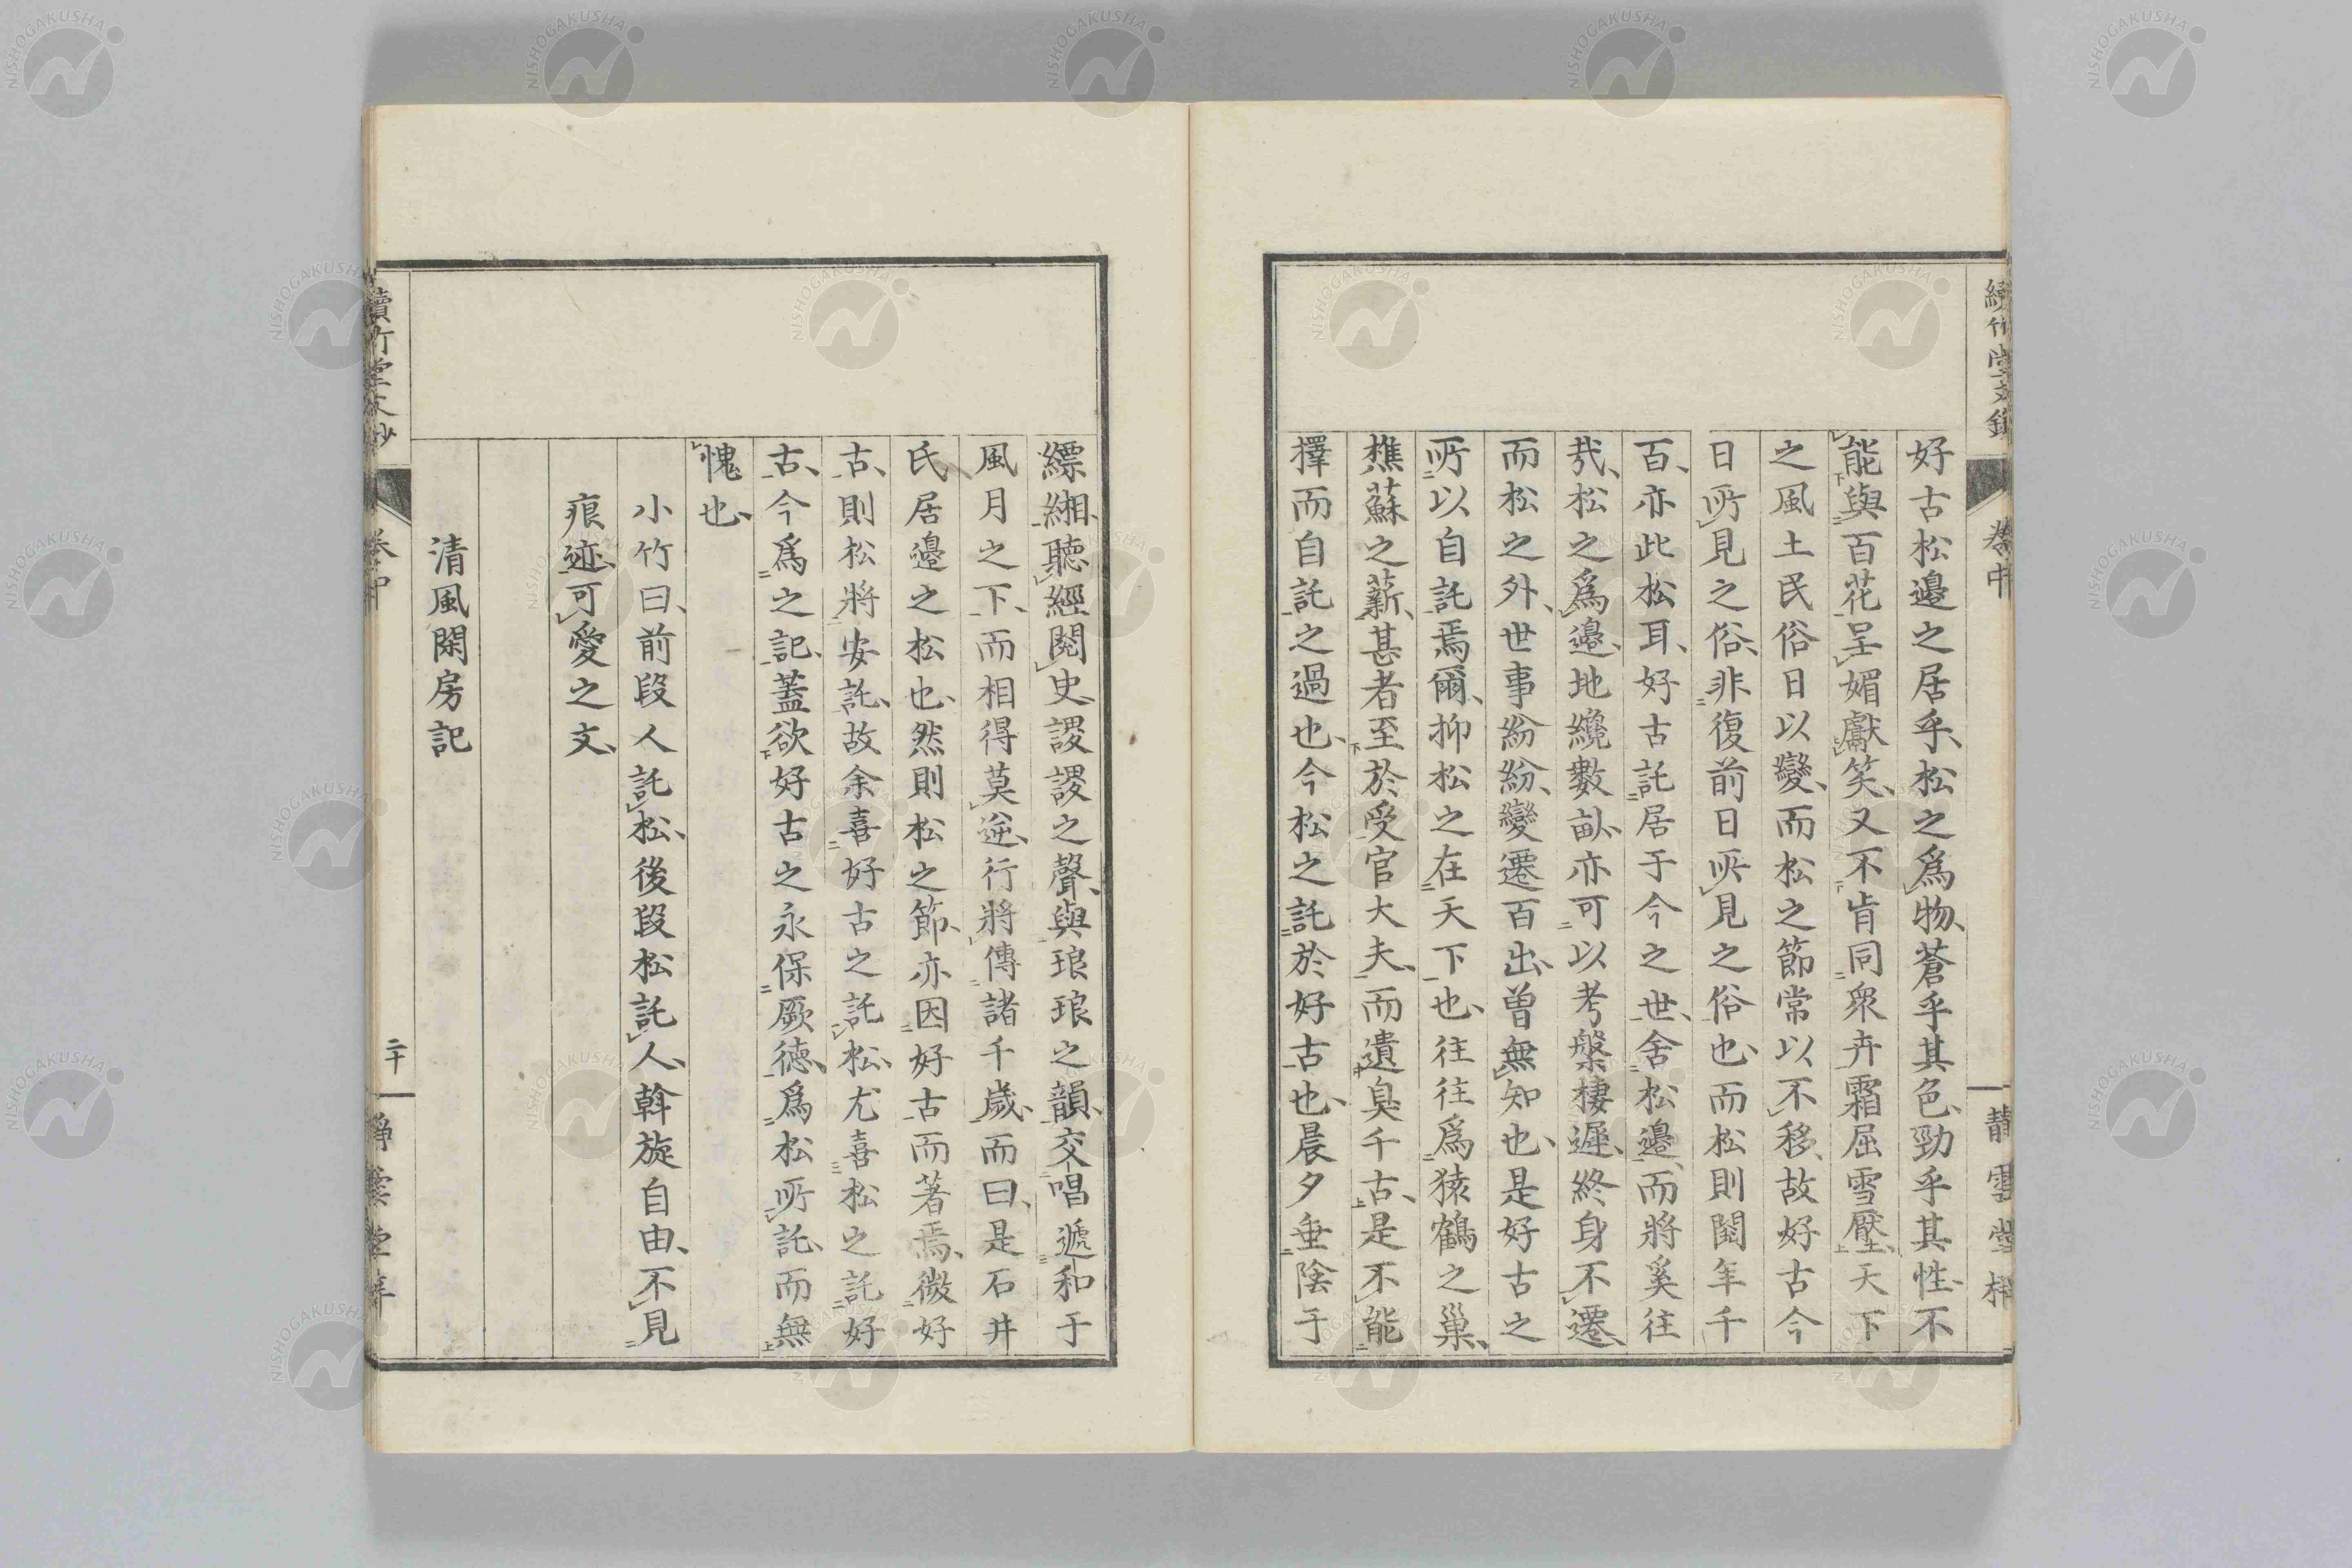 好古松邉之居乎、松之爲物、蒼乎其色、勁乎其性、不
能與百花呈媚獻笑、又不肯同衆卉霜屈雪壓、天下
之風土民俗日以變、而松之節常以不移、故好古今
日所見之俗、非復前日所見之俗也、而松則閲年千
百、亦此松耳、好古託居于今之世、舍松邉、而將奚往
哉、松之爲邉、地纔數畝、亦可以考槃棲遲、終身不遷、
而松之外、世事紛紛、變遷百出、曽無知也、是好古之
所以自託焉爾、抑松之在天下也、往往爲猿鶴之巢、
樵蘇之薪、甚者至於受官大夫、而遺臭千古、是不能
擇而自託之過也、今松之託於好古也、晨夕垂陰于
縹緗、聽經閲史、謖謖之聲、與琅琅之韻、交唱遞和于
風月之下、而相得莫逆、行將傳諸千歲、而曰、是石井
氏居邉之松也、然則松之節、亦因好古而著焉、微好
古、則松將安託、故余喜好古之託松、尤喜松之託好
古、今爲之記、蓋欲好古之永保厥徳、爲松所託、而無
愧也、
小竹曰、前段人託松、後段松託人、斡旋自由、不見
痕迹、可愛之文、
清風閑房記
卷中
二十
NISHOGAKUSHA